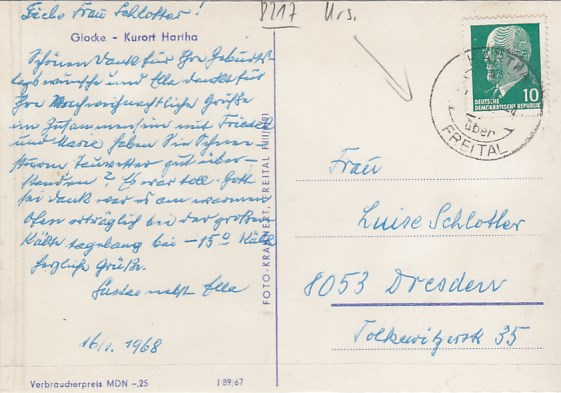 Liebe Frau Schlotter!
8217 Urs.
Glocke - Kurort Hartha
Schönen Dank für Ihre Geburts-
tagswünsche und Ella dankt für
Ihre Nachweihnachtlichen Grüße
im Zusammensein mit Friedel
und Marie haben Sie Schnee-
sturm Tauwetter gut über-
standen? Es war toll. Gott
sei dank war es am warmen
Ofen erträglich bei der großen
Kälte tagelang bis -15° Kälte
herzliche Grüße.
nebst Ella
16/1. 1968
Verbraucherpreis MDN -,25
J 89/67
FOTO-KRAINERT, FREITAL
10
DEUTSCHE
DEMOKRATISCHE REPUBLIK
HARTHA
über
FREITAL
Frau
Luise Schlotter
8053 Dresden
Tolkewitzerstr 35